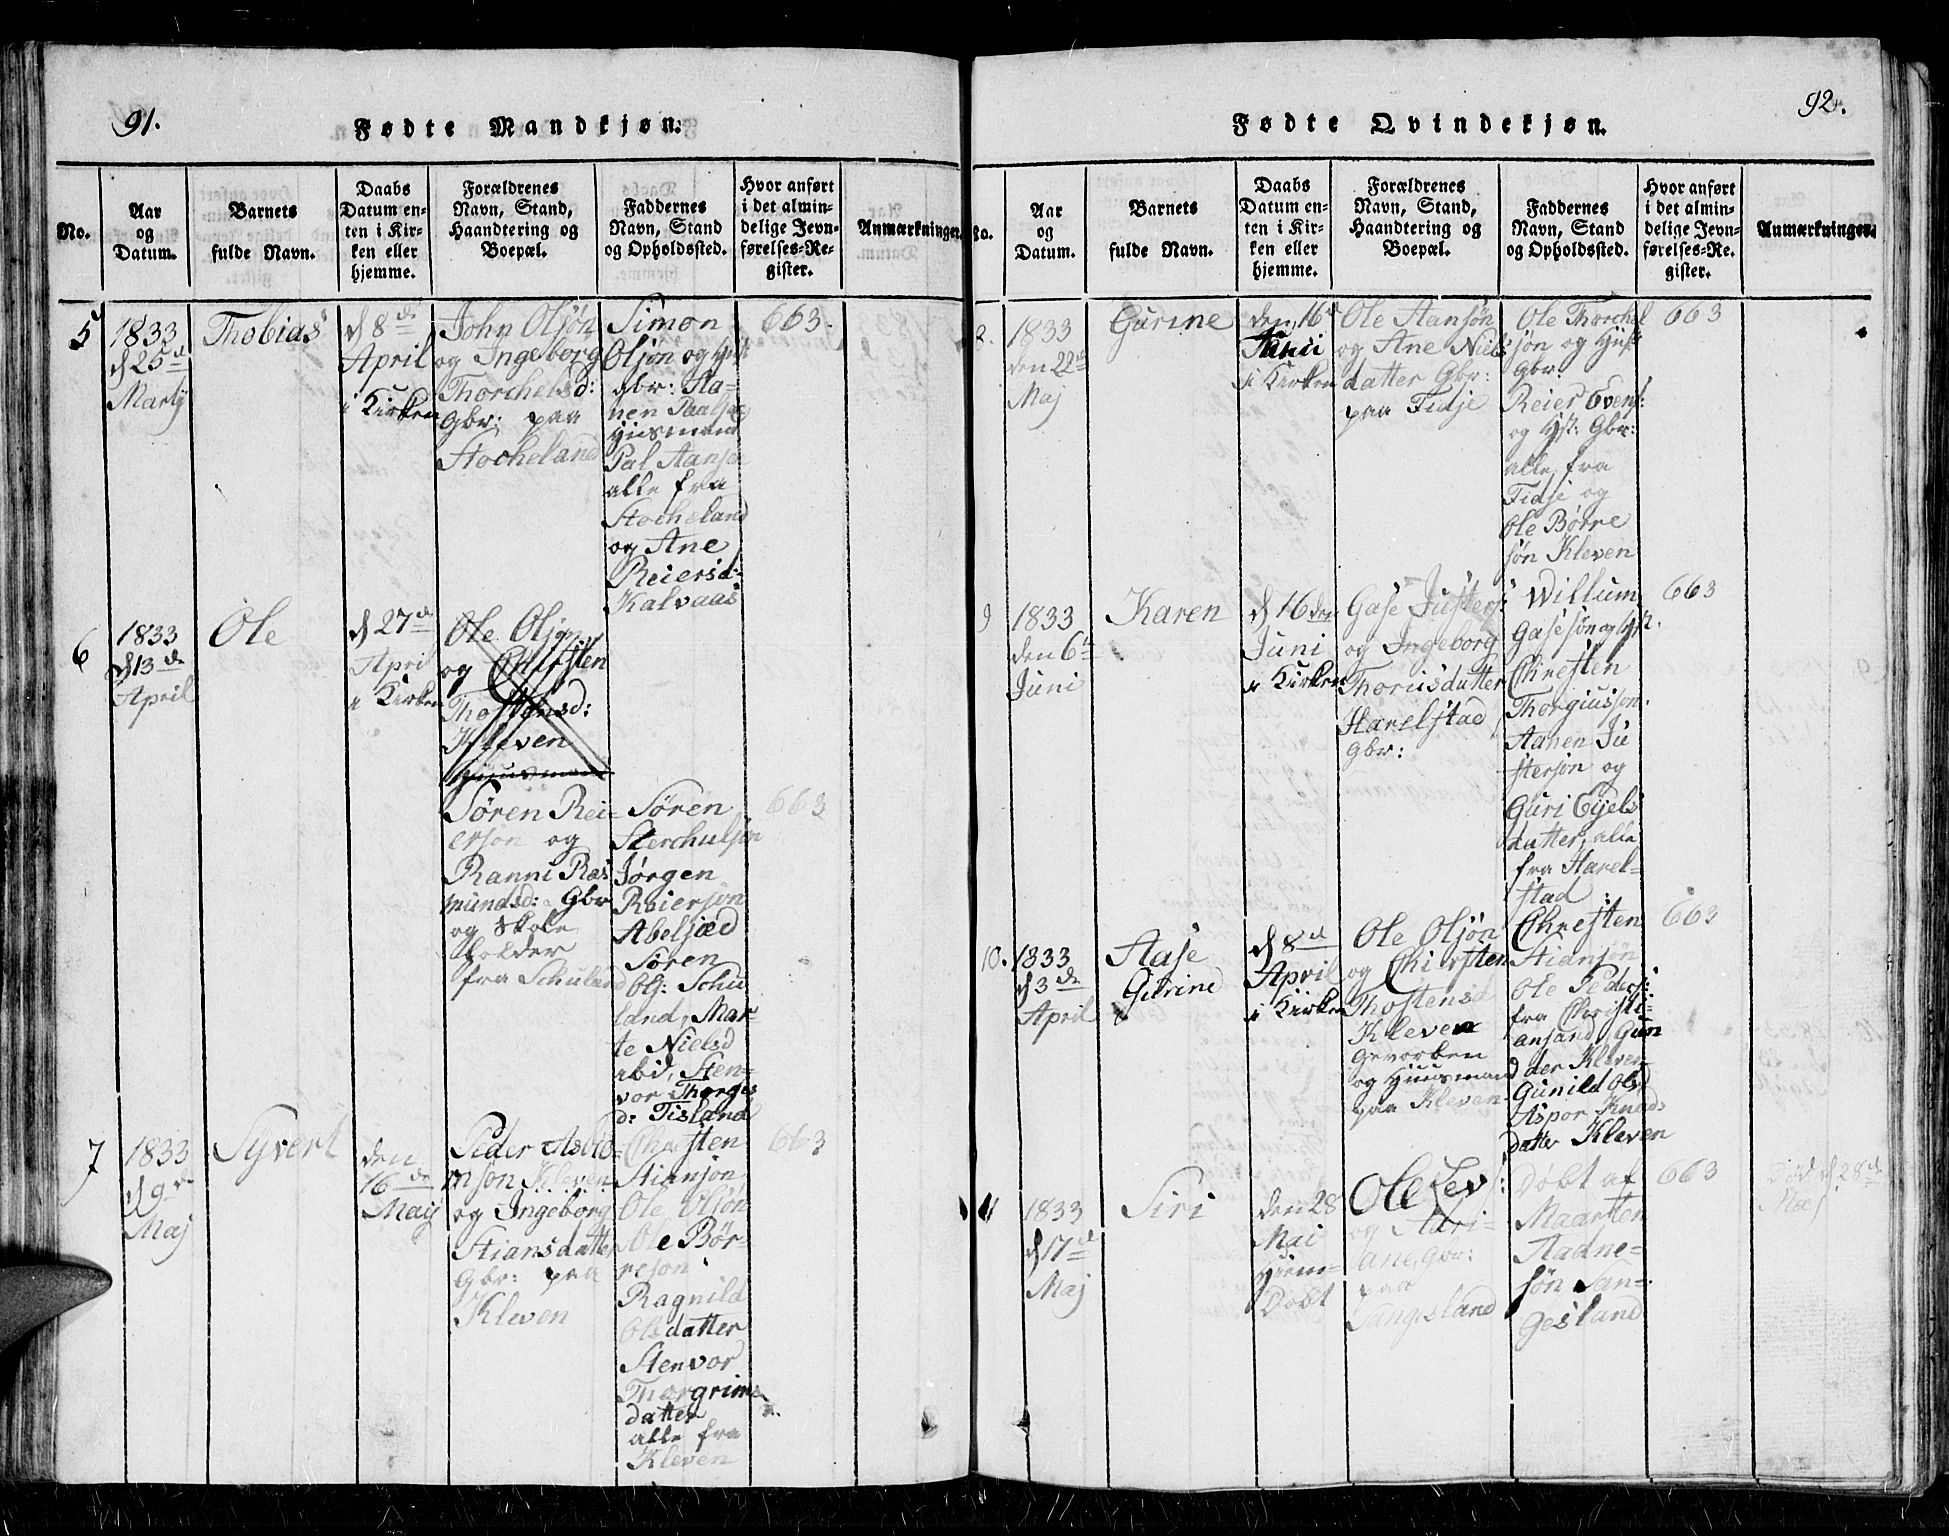 91.
Fødte Mandkjøn.
No.
Aar
og
Datum.
Barnets
fulde Navn.
Daabs
Datum en-
ten i Kir-
ken eller
hjemme.
Forældrenes
Navn, Stand,
Haandtering og
Boepæl.
Faddernes
Navn, Stand
og Opholdssted.
Hvor anført
i det almin-
delige Jevn-
førelses-Re-
gister.
Anmærkninger.
5
1833
d 25de
Martj
Thobias
d 8de
April
i Kirken
John Olsøn
og Ingeborg
Thorchelsd:
Gbr: paa
Stocheland
Simon
Olsøn og Hst
gbr: Aa-
nen Paalsøn
Huusmand
Pal Aansøn
alle fra
Stocheland
og Ane
Reiersd:
Kalvaas
663.
6
1833
d 13de
April
Ole
d 27de
April
i Kirken
Ole Olsøn
og Chirsten
Thostensd:
Kleven
Huusmand
Søren Rei-
ersøn og
Ranni Ras
mundsd: Gbr
og Skole
holder
fra Schuland
Søren
Sterchulsøn
Jørgen
Reiersøn
Abelsæd
Søren
Ols: Schu
land, Mar-
te Nielsd
ibid, Sten-
vor Thorges
d: Tisland
663
7
1833
d 9de
Maj
Syvert
den
16de
Maij
Peder Asbiø-
rnsøn Kleven
og Ingeborg
Stiansdatter
Gbr: paa
Kleven
Chresten
Stiansøn
Ole Olsøn
Ole Bør-
resøn
Ragnild
Olsdatter
Stenvor
Thorgrims
datter
alle fra
Kleven
663
92.
Fødte Qvindekjøn.
No.
Aar
og
Datum.
Barnets
fulde Navn.
Daabs
Datum en-
ten i Kir-
ken eller
hjemme.
Forældrenes
Navn, Stand,
Haandtering og
Boepæl.
Faddernes
Navn, Stand
og Opholdssted.
Hvor anført
i det almin-
delige Jevn-
førelses-Re-
gister.
Anmærkninger.
8.
1833
den 22de
Maj
Gurine
den 16de
Juni
i Kirken
Ole Aansøn
og Ane Niels
datter Gbr:
paa Fidje
Ole Thorchel
søn og Hust
Gbr:
Reier Evens:
og Hst: Gbr:
alle fra
Fidje og
Ole Børre
søn Kleven
663
9
1833
den 6te
Juni
Karen
d 16den
Juni
i Kirken
Gase Justers:
og Ingeborg
Thorusdatter
Harelstad
Gbr:
Willum
Gasesøn og Hst.
Chresten
Thorgiussøn.
Aanen Ju
stersøn og
Guri Eyels
datter, alle
fra Harel-
stad
663
10.
1833
d 3de
April
Aase
Gurine
d 8de
April
i Kirken
Ole Olsøn
og Chiersten
Thostensd
Kleven
Gevorben
og Huusmand
paa Kleven
Chresten
Stiansøn
Ole Peders:
fra Christi-
ansand, Gun
der Kleven
Gunild Ols
Aspor Knuds
datter Kleven
663
11
1833
d 17de
Maj
Siri
den 28
Mai
Hiem-
Døbt
Ole Lev:
og Adri-
ane, Gbr:
paa
Sangesland
Døbt af
Maarten
Aadne-
søn San-
gesland
663
Død d 28de
Maj